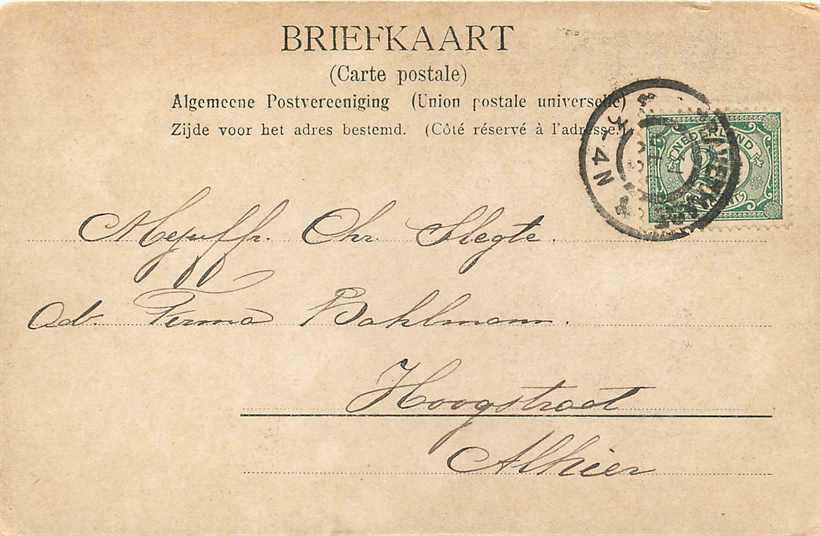 BRIEFKAART
(Carte postale)
Algemeene Postvereeniging (Union postale universelle)
Zijde voor het adres bestemd. (Côté réservé à l'adresse.)
3-4N
NEDERLAND
Mejuffr. Chr. Slegte.
Adr. Firma Bahlmann.
Hoogstraat
Alhier